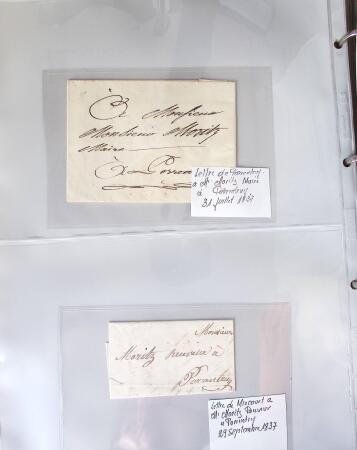 A Monsieur
Monsieur Moritz
Maire
à Porren
Lettre de Porrentruy
a Mr Moritz Maire
à
31 juillet 183
Monsieur
Moritz receveur à
Porrentruy
Lettre de Miecourt a
Mr Moritz
a Porrentruy
29 Septembre 1837